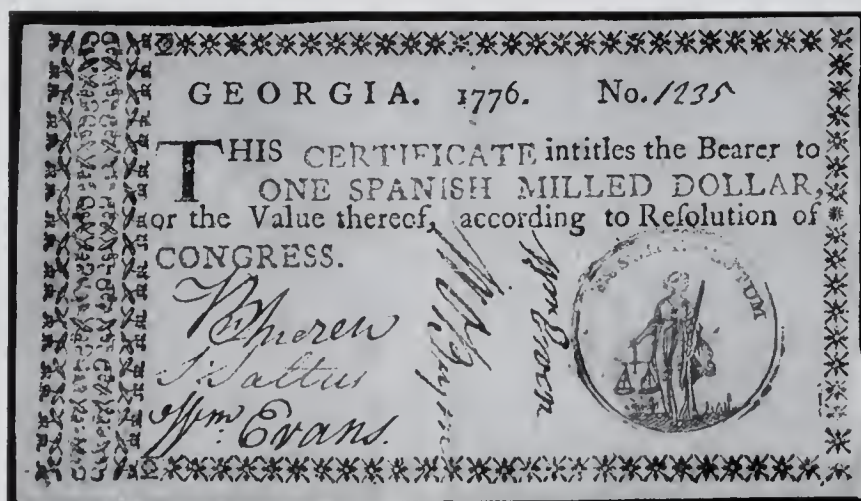 GEORGIA. 1776. No. 1235
THIS CERTIFICATE intitles the Bearer to
ONE SPANISH MILLED DOLLAR,
or the Value thereof, according to Reſolution of
CONGRESS.
Wm. Evans.